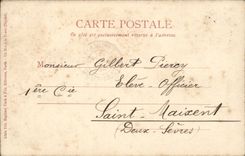 CARTE POSTALE
Ce côté est exclusivement réservé à l'adresse
Monsieur Gilbert
Elève-Officier
1ère Cie
Saint-Maixent
(Deux-Sèvres)